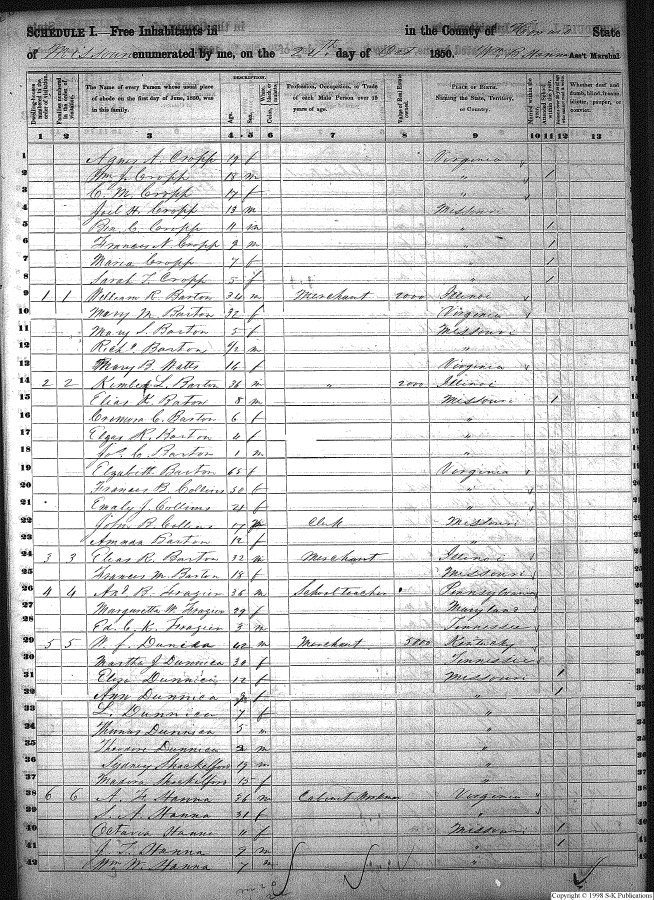 SCHEDULE I.—Free Inhabitants in in the County of Howard State
of Missouri enumerated by me, on the day of Oct 1850. Wm B. Hanna Ass't Marshal.
Dwelling-houses numbered in the order of visitation.
Families numbered in the order of visitation.
The Name of every Person whose usual place of abode on the first day of June, 1850, was in this family.
DESCRIPTION.
Age.
Sex.
White, black, or mulatto.
Color.
Profession, Occupation, or Trade of each Male Person over 15 years of age.
Value of Real Estate owned.
PLACE OF BIRTH. Naming the State, Territory, or Country.
Married within the year.
Whether deaf and dumb, blind, insane, idiotic, pauper, or convict.
1 2 3 4 5 6 7 8 9 10 11 12 13
1 Agnes A. Cropp 19 f Virginia
2 Wm J. Cropp 18 m " 1
3 C. M. Cropp 17 f "
4 Joel H. Cropp 13 m Missouri
5 Ben C. Cropp 11 m " 1
6 Frances N. Cropp 9 m " 1
7 Maria Cropp 7 f " 1
8 Sarah T. Cropp 5 f " 1
9 1 1 William R. Barton 34 m Merchant 2000 Illinoi
10 Mary M. Barton 32 f Virginia
11 Mary S. Barton 5 f Missouri
12 Richd Barton 1/2 m "
13 Mary B. Watts 16 f Virginia
14 2 2 Kimber L. Barton 36 m " 2000 Illinoi
15 Elias K. Barton 8 m Missouri 1
16 C. Barton 6 f "
17 R. Barton 4 f "
18 Jos C. Barton 1 m "
19 Elizabeth Barton 65 f Virginia
20 Frances B. Collins 30 f "
21 Emaly J. Collins 21 f "
22 John R. Collins 17 Clerk Missouri
23 Amanda Barton 12 f "
24 3 3 Elias R. Barton 32 m Merchant Illinoi
25 Frances M. Barton 18 f Missouri
26 4 4 And B. Frazier 36 m School teacher Pennsylvania
27 Margaretta W. Frazier 29 f Maryland
28 Ed. C. K. Frazier 3 m Tennissee
29 5 5 W. J. Dunica 42 m Merchant 5000 Kentucky
30 Martha J Dunnica 30 f Tennissee
31 Eliza Dunnica 12 f Missouri 1
32 Ann Dunnica f " 1
33 L. Dunnica 7 f "
34 Thomas Dunnica 5 m "
35 Theodore Dunnica 2 m "
36 Sydney Shackelford 19 m "
37 Shackelford 15 f "
38 6 6 A. F. Hanna 36 m Cabinet Workman Virginia
39 S. A. Hanna 31 f "
40 Octavia Hanna 11 f Missouri 1
41 J. T. Hanna 9 m " 1
42 Wm W. Hanna 7 m "
Copyright © 1998 S-K Publications